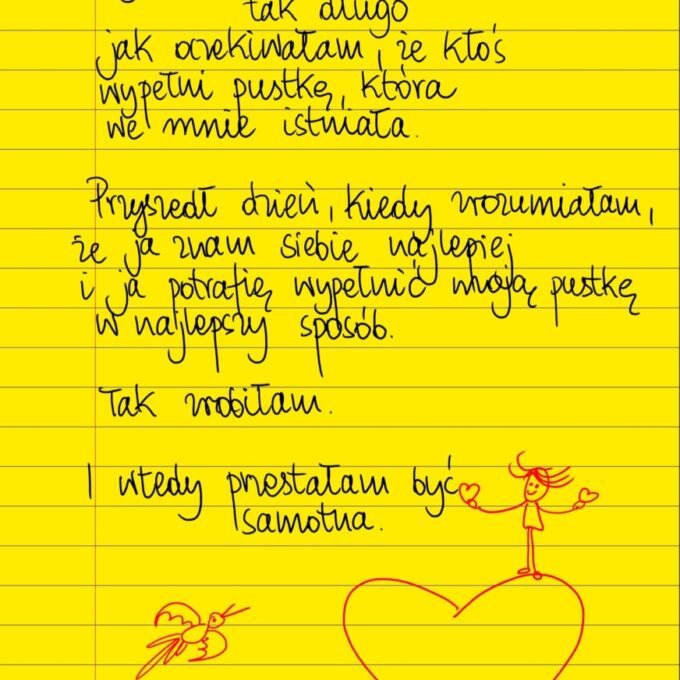 tak długo
jak oczekiwałam, że ktoś
wypełni pustkę, która
we mnie istniała.
Przyszedł dzień, kiedy zrozumiałam,
że ja znam siebie najlepiej
i ja potrafię wypełnić moją pustkę
w najlepszy sposób.
Tak zrobiłam.
I wtedy przestałam być
samotna.